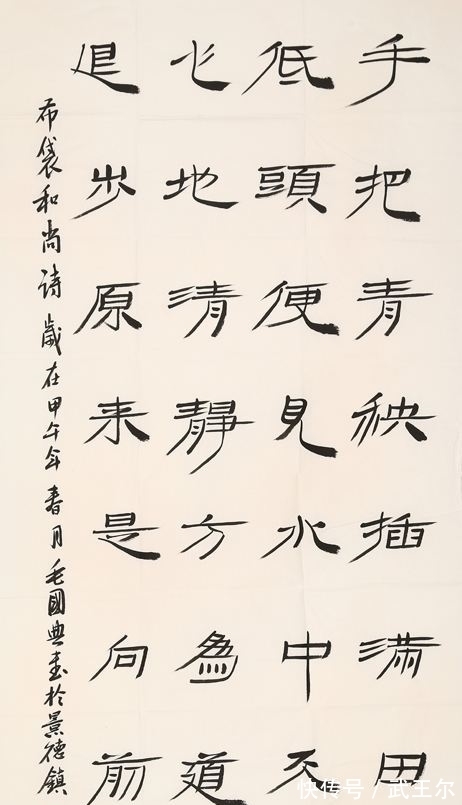 手把青秧插满田
低頭便見水中天
心地清靜方為道
退步原来是向前
布袋和尚诗 歲在甲午年春月毛國典書於景德鎮
快传号 / 武王尔